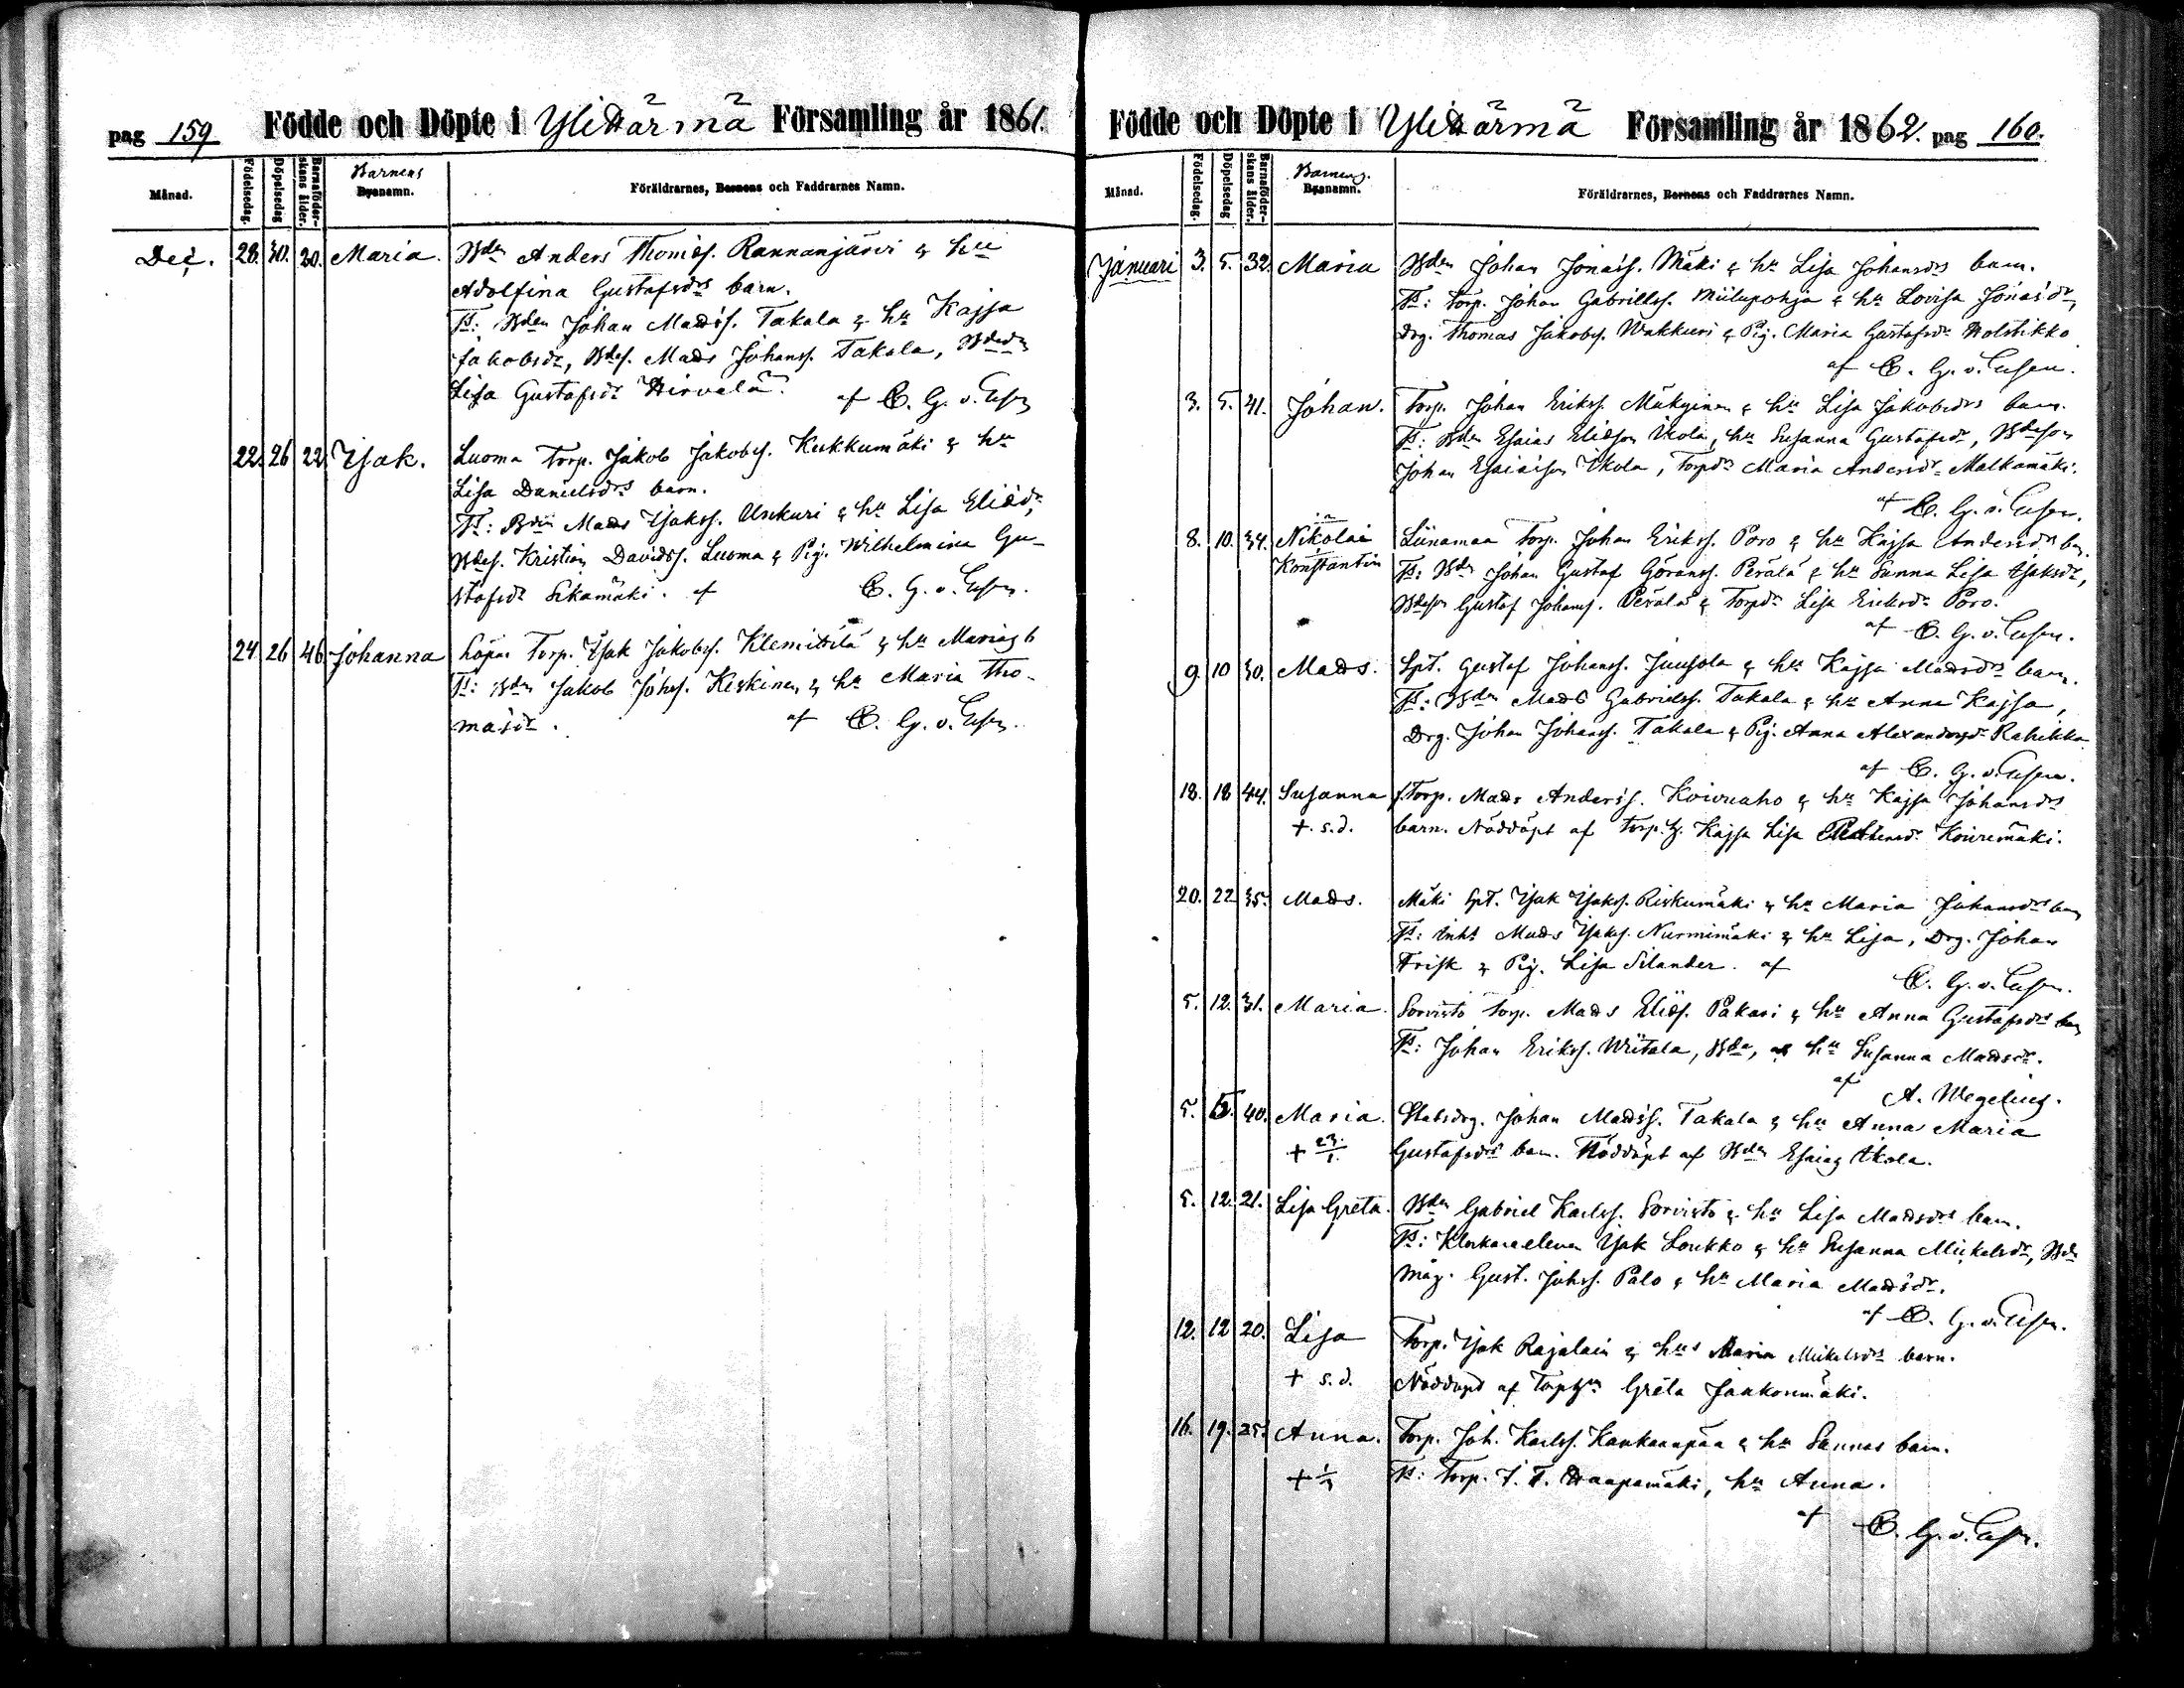 pag 159
Födde och Döpte i YliHärmä Församling år 1861.
Månad.
Födelsedag.
Döpelsedag
Barnaföder-
skans ålder.
Barnens
Bysnamn.
Föräldrarnes, Barnens och Faddrarnes Namn.
Dec. 28. 30. 20. Maria. Bdn Anders Thomæs. Rannanjärvi & hu
Adolfina Gustafsdrs barn.
Ft: Bdn Johan Madss. Takala & hu Kajsa
Jakobsdr, Bdes. Mads Johanss. Takala, Bdedr
Lisa Gustafsdr Hirvelä. af C. G. v. Essen
22. 26 22 Isak. Luoma Torp. Jakob Jakobss. Kukkumäki & hu
Lisa Danielsdrs barn.
Ft: Bdn Mads Isakss. Uukuri & hu Lisa Eliædr,
Bdes. Kristian Davidss. Luoma & Pig. Wilhelmina Gu-
stafsdr Sikamäki. af C. G. v. Essen.
24 26 46 Johanna Torp. Isak Jakobss. Klemittilä & hu Marias b
Ft: Bdn Jakob Johss. Keskinen & hu Maria Tho-
masdr. af C. G. v. Essen.
Födde och Döpte i YliHärmä Församling år 1862. pag 160.
Månad.
Födelsedag.
Döpelsedag
Barnaföder-
skans ålder.
Barnens.
Bysnamn.
Föräldrarnes, Barnens och Faddrarnes Namn.
Januari 3. 5. 32. Maria Bdn Johan Jonass. Mäki & hu Lisa Johansdrs barn.
Ft: Torp. Johan Gabrielss. Miilupohja & hu Lovisa Jonasdr,
Drg. Thomas Jakobss. Wakkuri & Pig. Maria Gustafsdr Holstikko
af C. G. v. Essen.
3. 5. 41. Johan. Torp. Johan Erikss. Mäkynen & hu Lisa Jakobsdrs barn.
Ft: Bdn Esaias Eliæson Ekola, hu Susanna Gustafsdr, Bdeson
Johan Esaiæson Ekola, Torpdr Maria Andersdr Malkamäki.
af C. G. v. Essen.
8. 10. 34. Nikolai Liinamaa Torp. Johan Erikss. Poro & hu Kajsa Andersdrs bn.
Konstantin Ft: Bdn Johan Gustaf Göranss. Perälä & hu Sanna Lisa Isaksdr,
Bdeson Gustaf Johanss. Perälä & Torpdr Lisa Eriksdr Poro.
af C. G. v. Essen.
9. 10 30. Mads. Spt. Gustaf Johanss. Juusola & hu Kajsa Madsdrs barn.
Ft: Bdn Mads Gabrielss. Takala & hu Anna Kajsa,
Drg. Johan Johanss. Takala & Pig. Anna Alexandersdr Rahikka
af C. G. v. Essen.
18. 18 44. Susanna f. Torp. Mads Anderss. Koivuaho & hu Kajsa Johansdrs
+. s.d. barn. Nöddöpt af Torp.h. Kajsa Lisa Koivumäki.
20. 22 35. Mads. Mäki Spt. Isak Isakss. Riskumäki & hu Maria Johansdrs barn
Ft: Inhs Mads Isakss. Nurmimäki & hu Lisa, Drg. Johan
Frisk & Pig. Lisa Silander. af C. G. v. Essen.
5. 12. 31. Maria. Sorvisto Torp. Mads Eliæs. Pakari & hu Anna Gustafsdrs barn
Ft: Johan Erikss. Wiitala, Bde, & hu Susanna Madsdr.
af A. Wegelius.
5. 5. 40. Maria. Statsdrg. Johan Madss. Takala & hu Anna Maria
+ 23/1. Gustafsdrs barn. Nöddöpt af Bdn Esaias Ekola.
5. 12. 21. Lisa Greta. Bdn Gabriel Karlss. Sorvisto & hu Lisa Madsdrs barn.
Ft: Klockareeleven Isak Loukko & hu Susanna Mickelsdr, Bde
måg. Gust. Johss. Palo & hu Maria Madsdr.
af C. G. v. Essen.
12. 12 20. Lisa Torp. Isak Rajalain & hus Maria Mickelsdrs barn.
+ s.d. Nöddöpt af Greta Jaakonmäki.
16. 19. 25. Anna. Torp. Joh. Karlss. Kankaanpää & hu Sannas barn.
+ Ft: Torp. J. T. Haapamäki, hu Anna.
af C. G. v. Essen.